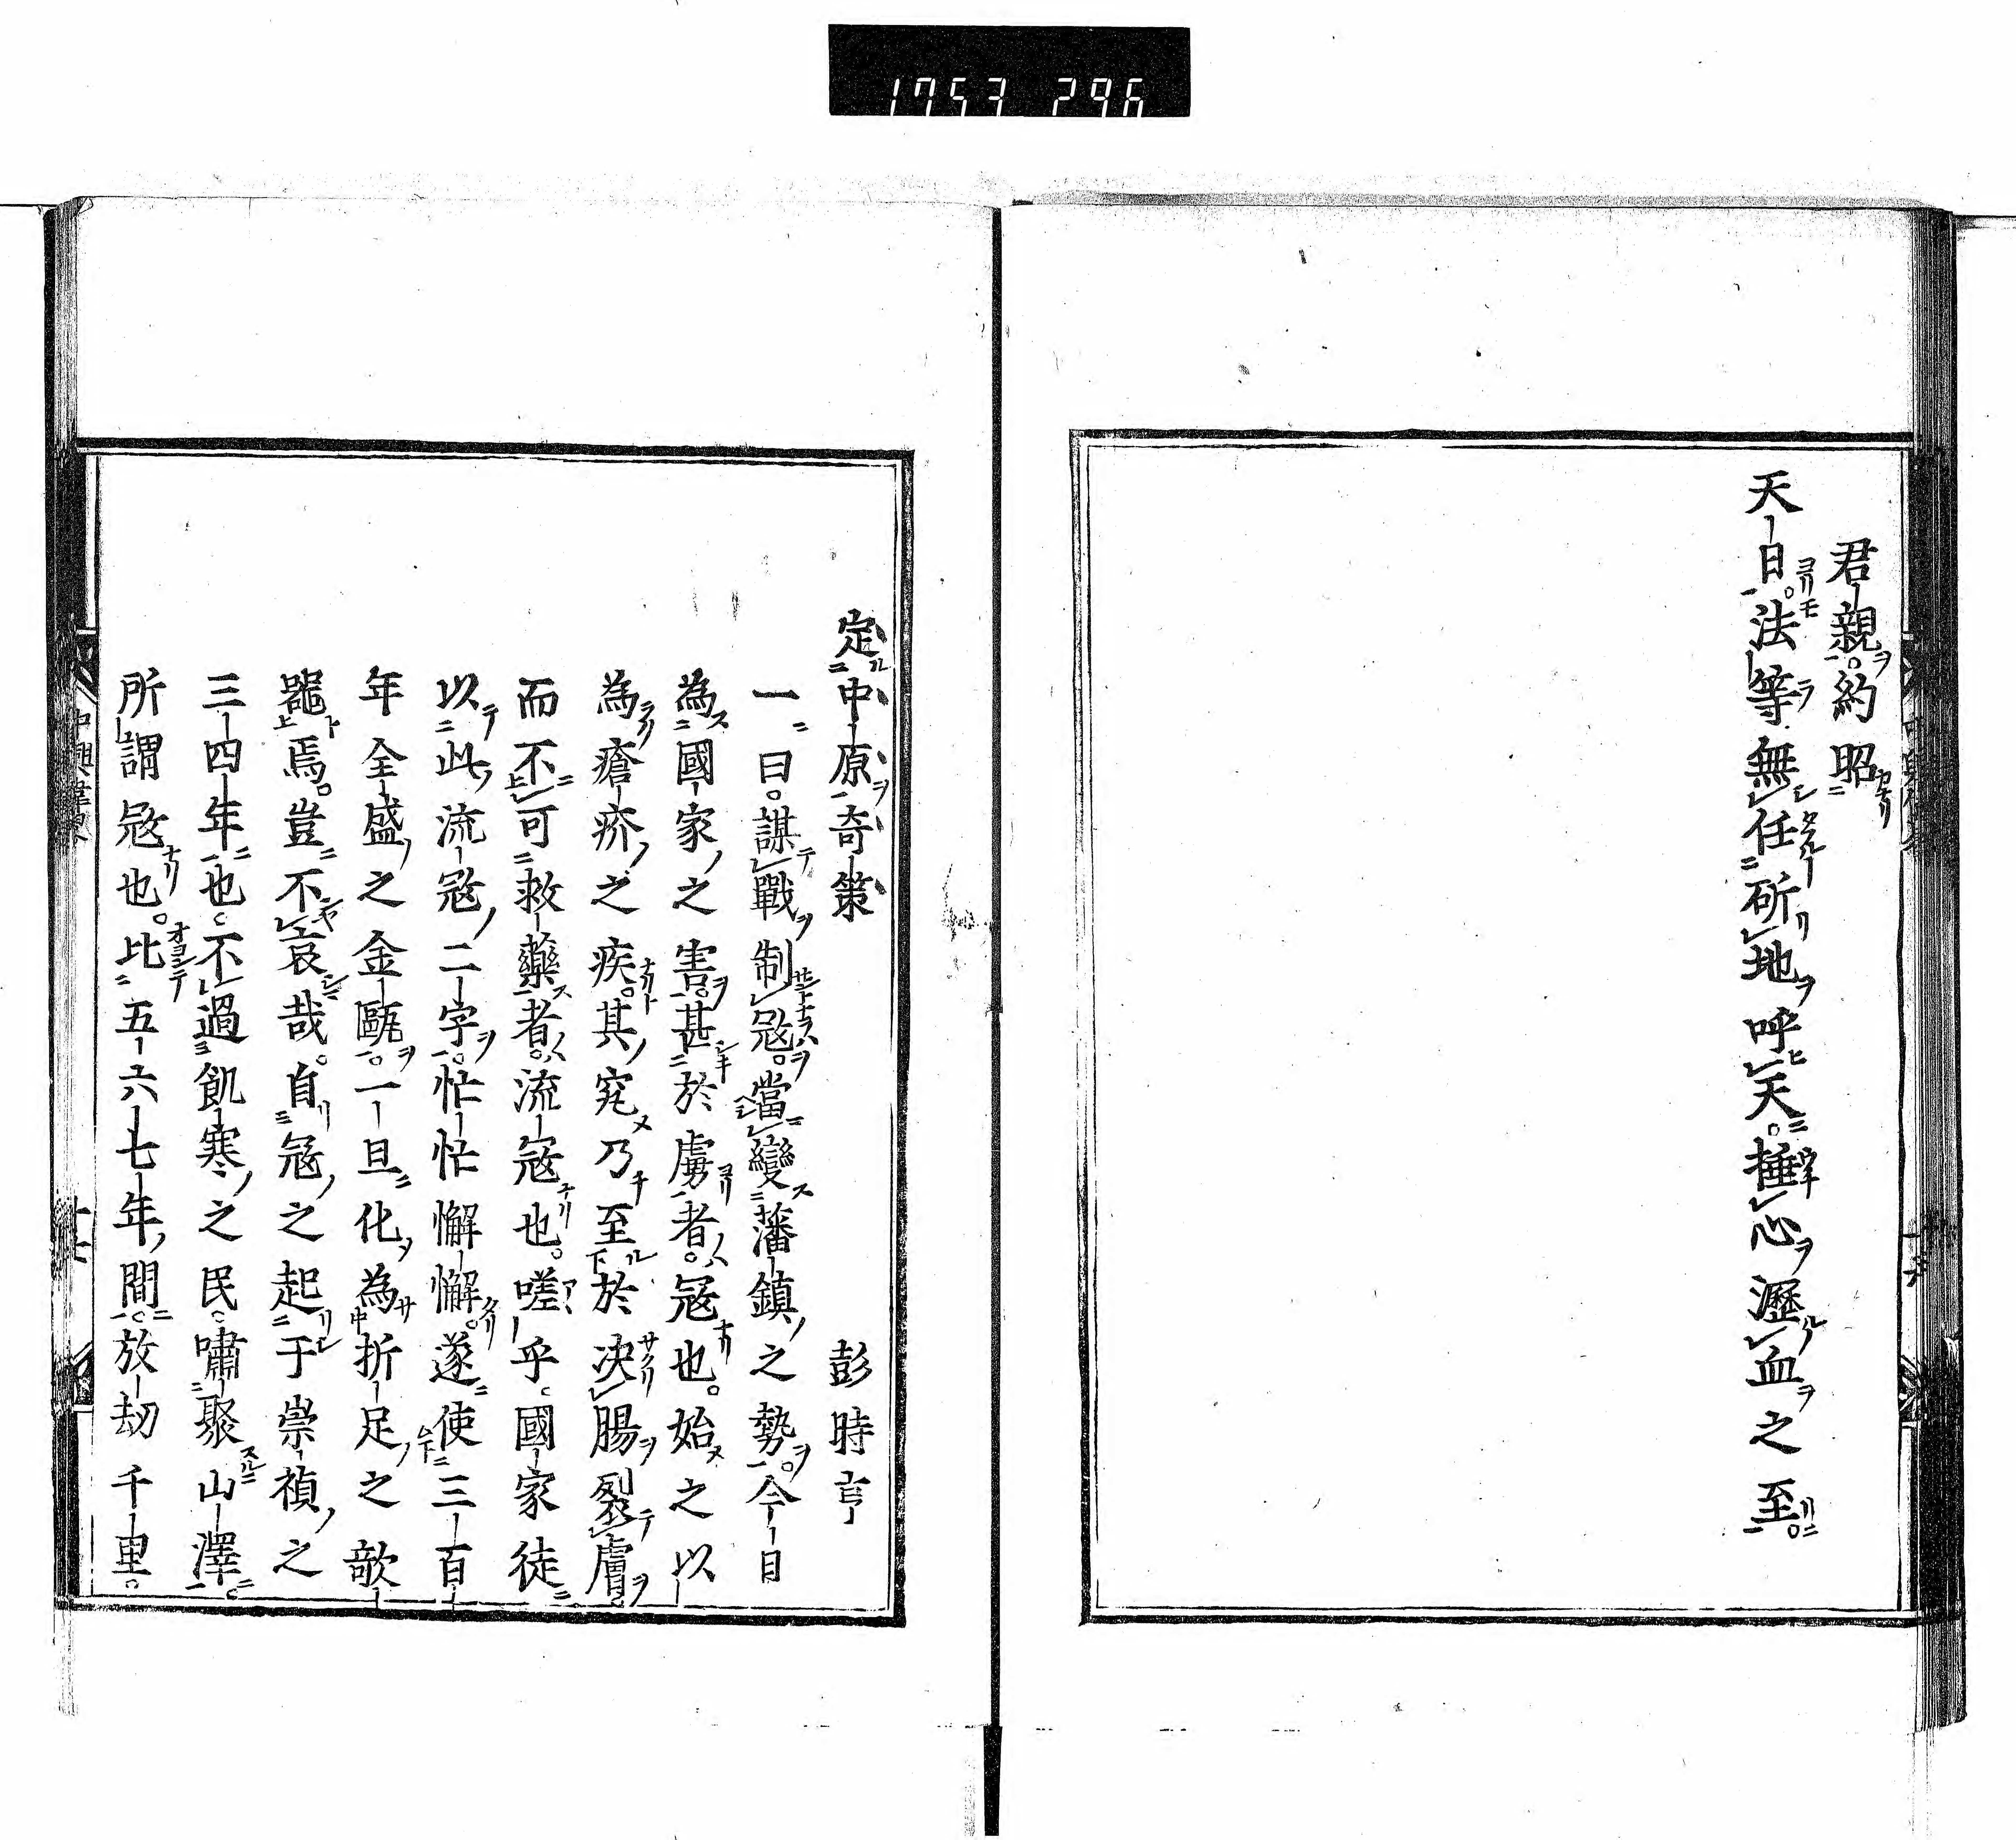 1753 296
君親約昭
天日法等無任斫地呼天捶心瀝血之至
定中原奇策 彭時亨
一曰謀戰制寇當變藩鎮之勢今日
為國家之害甚於虜者寇也始之以
為瘡疥之疾其究乃至於决腸裂膚
而不可救藥者流寇也嗟乎國家徒
以此流寇二字忙忙懈懈遂使三百
年全盛之金甌一旦化為折足之欹
器焉豈不哀哉自寇之起于崇禎之
三四年也不過飢寒之民嘯聚山澤
所謂寇也比五六七年間放劫千里
中興偉畧